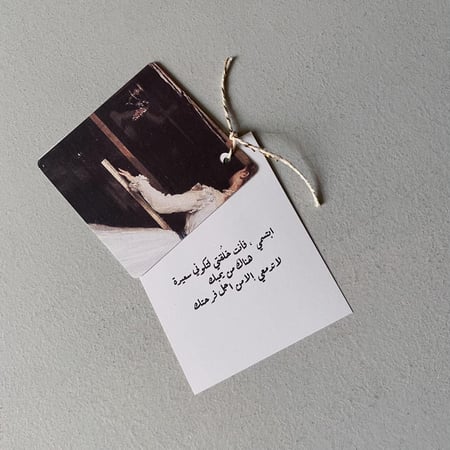 ابتسمي ، فأنت خُلقتي لتكوني سعيرة
هناك من يحبك
لا تدمعي إلا من اجل فرحتك